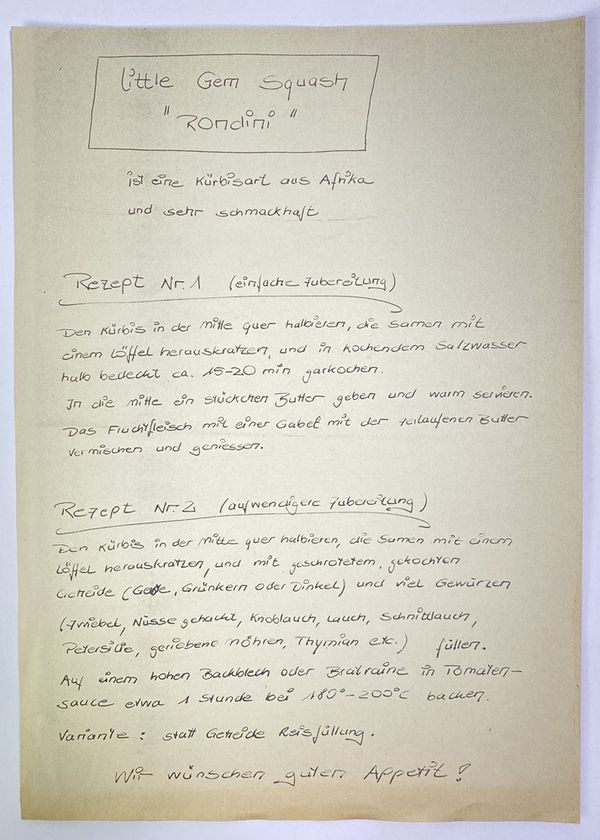 Little Gem Squash
"Rondini"
ist eine Kürbisart aus Afrika
und sehr schmackhaft
Rezept Nr. 1 (einfache Zubereitung)
Den Kürbis in der Mitte quer halbieren, die Samen mit
einem Löffel herauskratzen, und in kochendem Salzwasser
halb bedeckt ca. 15-20 min garkochen.
In die Mitte ein Stückchen Butter geben und warm servieren.
Das Fruchtfleisch mit einer Gabel mit der zerlaufenen Butter
vermischen und geniessen.
Rezept Nr. 2 (aufwendigere Zubereitung)
Den Kürbis in der Mitte quer halbieren, die Samen mit einem
Löffel herauskratzen, und mit geschrotetem, gekochten
Getreide (Gerste, Grünkern oder Dinkel) und viel Gewürzen
(Zwiebel, Nüsse gehackt, Knoblauch, Lauch, Schnittlauch,
Petersilie, geriebene Möhren, Thymian etc.) füllen.
Auf einem hohen Backblech oder Bratraine in Tomaten-
sauce etwa 1 Stunde bei 180°-200°C backen.
Variante: statt Getreide Reisfüllung.
Wir wünschen guten Appetit!